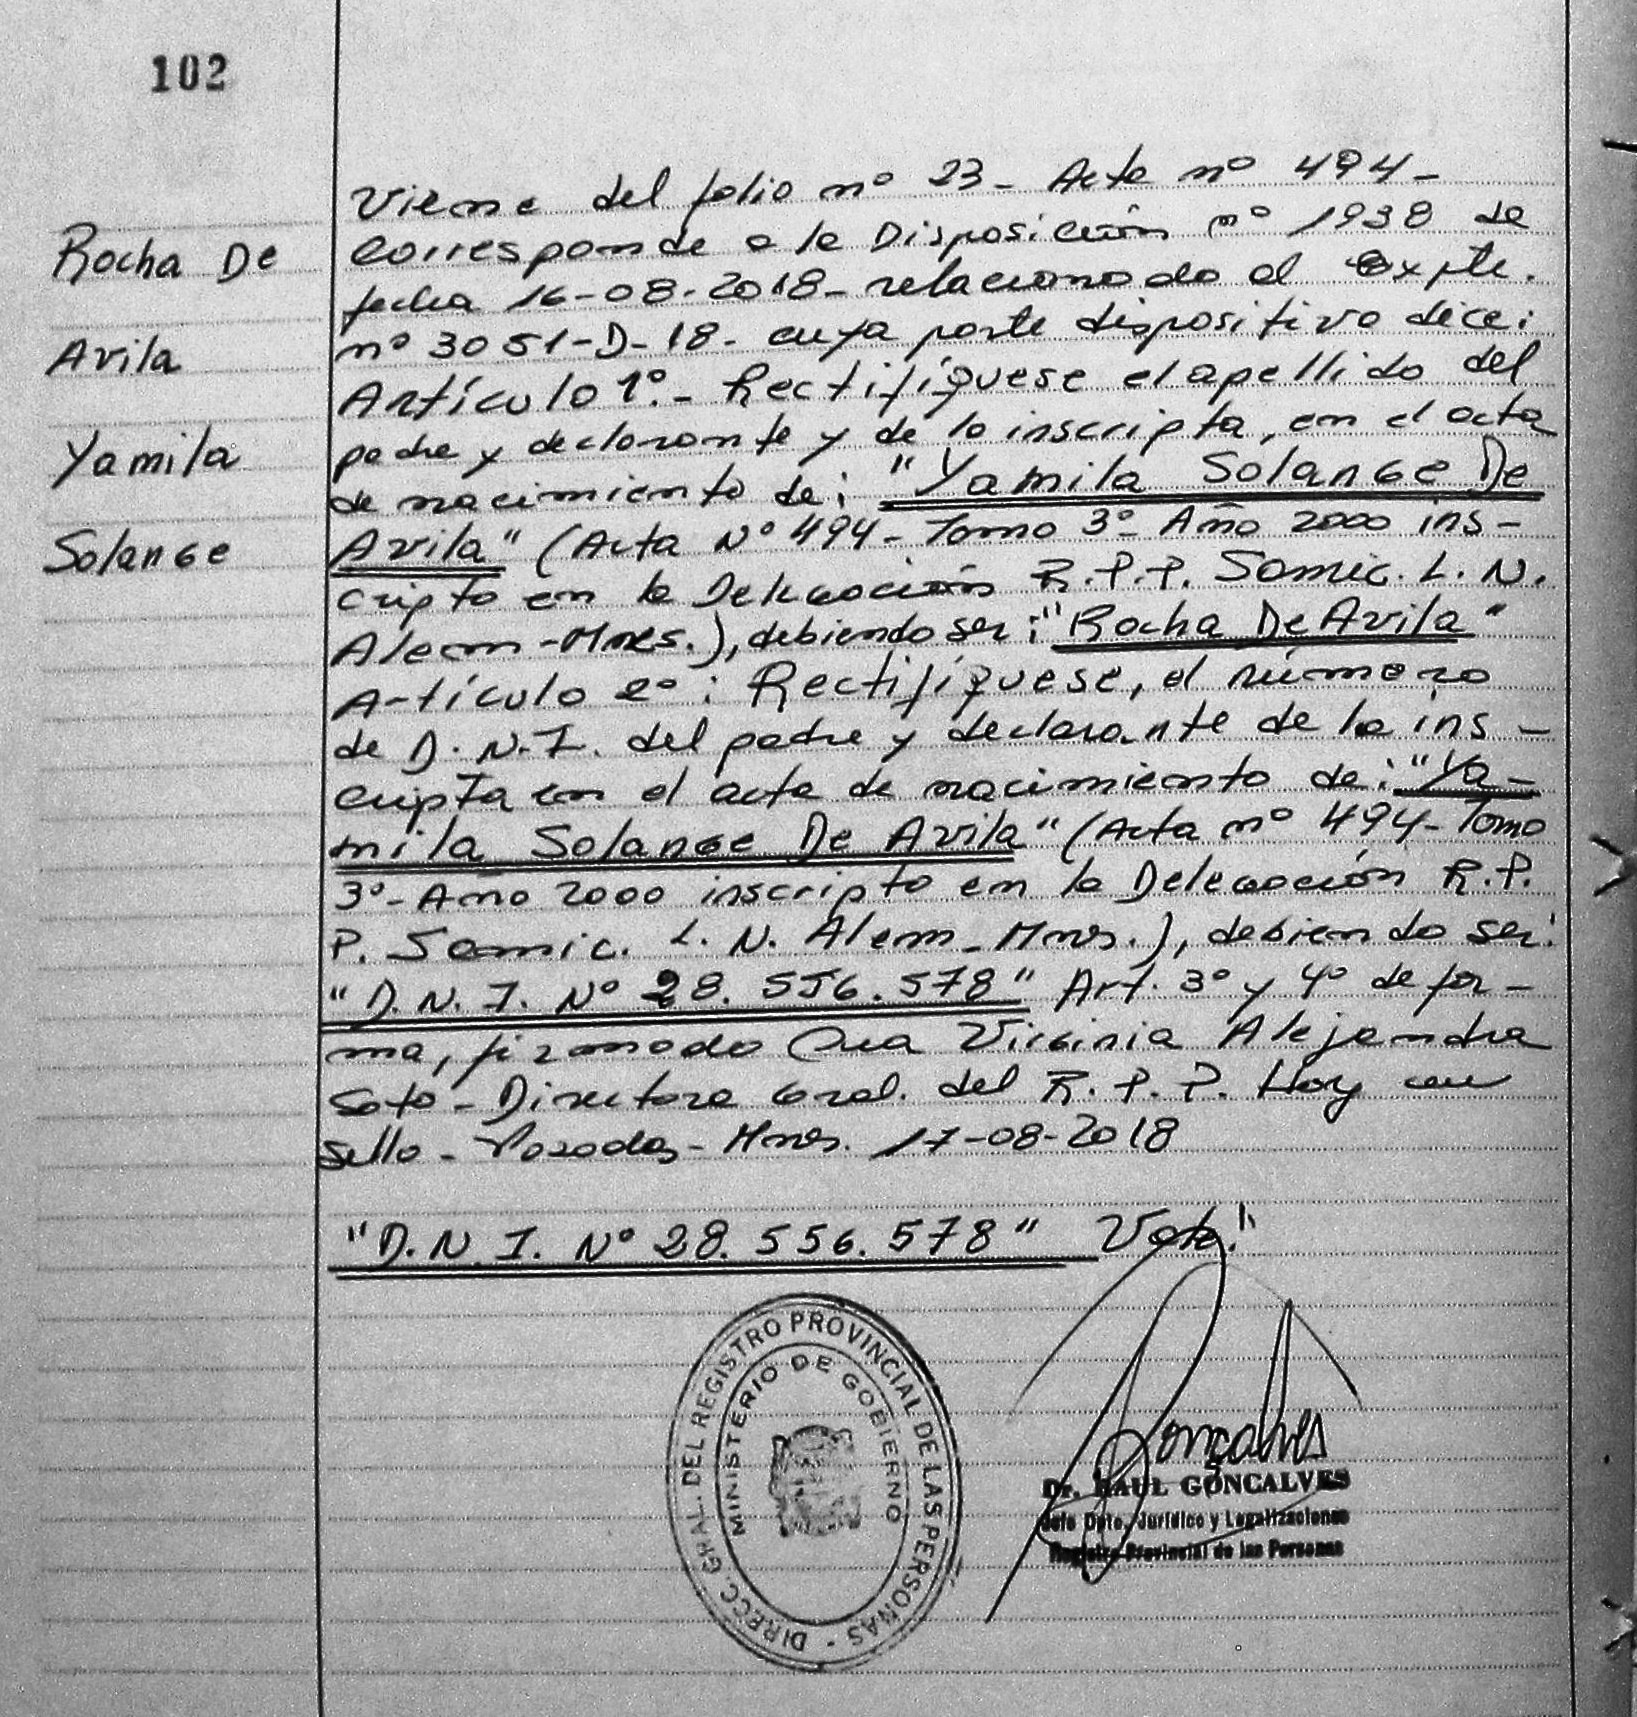 102
Rocha De
Avila
Yamila
Solange
Viene del folio nº 23- Acta nº 494-
Corresponde a la Disposición nº 1938 de
fecha 16-08-2018- relacionado al Expte.
nº 3051-D-18- cuya parte dispositiva dice:
Artículo 1º.- Rectifíquese el apellido del
padre y declarante y de la inscripta, en el acta
de nacimiento de: "Yamila Solange De
Avila" (Acta Nº 494- Tomo 3º- Año 2000 ins-
cripto en la Delegación R.P.P. Samic. L. N.
Alem-Mnes.), debiendo ser: "Rocha De Avila"
Artículo 2º: Rectifíquese, el número
de D.N.I. del padre y declarante de la ins-
cripta en el acta de nacimiento de: "Ya-
mila Solange De Avila" (Acta nº 494- Tomo
3º- Año 2000 inscripto en la Delegación R.P.
P. Samic. L. N. Alem-Mnes.), debiendo ser:
"D.N.I. Nº 28.556.578" Art. 3º y 4º de for-
ma, firmado Virginia Alejandra
Soto- Directora Gral. del R.P.P. Hay un
sello- Posadas- Mnes. 17-08-2018
"D.N.I. Nº 28.556.578" Vale."
DIRECC. GRAL. DEL REGISTRO PROVINCIAL DE LAS PERSONAS -
MINISTERIO DE GOBIERNO
Gonçalves
Dr. RAUL GONCALVES
Jefe Dpto. Jurídico y Legalizaciones
Registro Provincial de las Personas